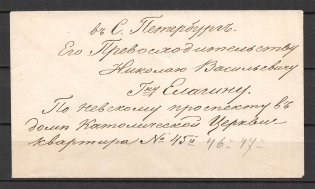 въ С. Петербургъ.
Его Превосходительству
Николаю Васильевичу
Гну Елагину.
По Невскому проспекту въ
домѣ Католической Церкви
квартира № 45й 46й 47й